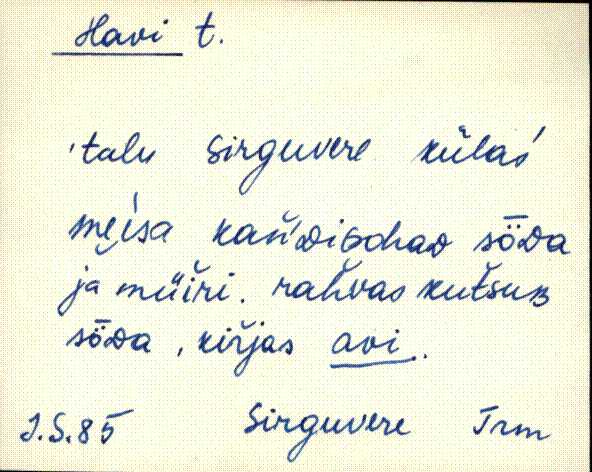 Havi t.
'talu Sirguvere külas'
meisa kand́ipohaD sȫDa
ja müiri. rahvas kutsuB
sȫDa, kirjas avi.
J.S.85 Sirguvere Trm